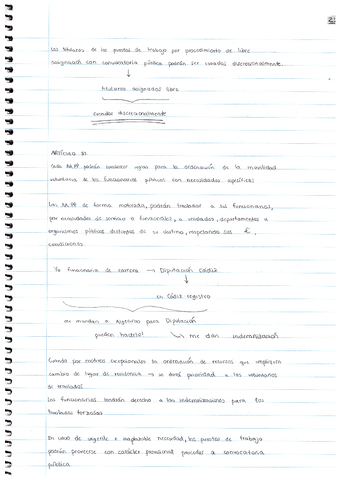 Los titulares de los puestos de trabajo por procedimiento de libre
asignación con convocatoria pública podrán ser cesados discrecionalmente.
titulares asignados libre
cesados discrecionalmente
Artículo 81
Cada AAPP podrán establecer reglas para la ordenación de la movilidad
voluntaria de los funcionarios públicos con necesidades específicas
Las AAPP de forma motivada, podrán trasladar a sus funcionarios,
por necesidades de servicio o funcionales, a unidades, departamentos u
organismos públicos distintos de su destino, respetando sus €,
condiciones
Yo funcionaria de carrera → Diputación Cádiz
en Cádiz registro
me mandan a Algeciras para Diputación
pueden hacerlo! me dan indemnización
Cuando por motivos excepcionales la ordenación de recursos que impliquen
cambio de lugar de residencia → se dará prioridad a los voluntarios
de traslados
Los funcionarios tendrán derecho a las indemnizaciones para los
traslados forzosos
En caso de urgente e inaplazable necesidad, los puestos de trabajo
podrán proveerse con carácter provisional proceder a convocatoria
pública